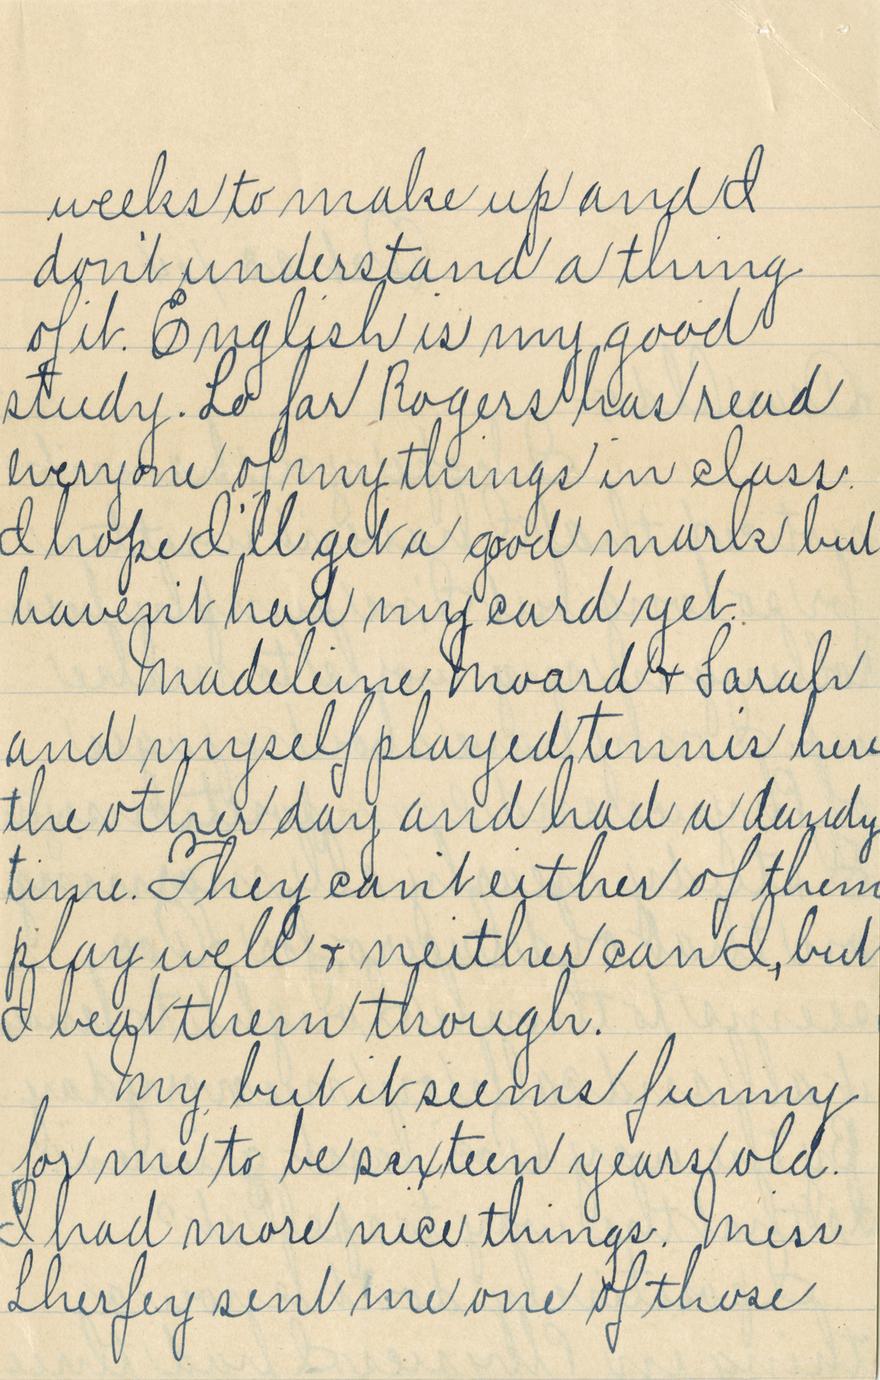 weeks to make up and I
don't understand a thing
of it. English is my good
study. So far Rogers has read
everyone of my things in class.
I hope I'll get a good mark but
haven't had my card yet.
Madeleine Moard & Sarah
and myself played tennis here
the other day and had a dandy
time. They can't either of them
play well & neither can I, but
I beat them though.
My, but it seems funny
for me to be sixteen years old.
I had more nice things. Miss
sent me one of those